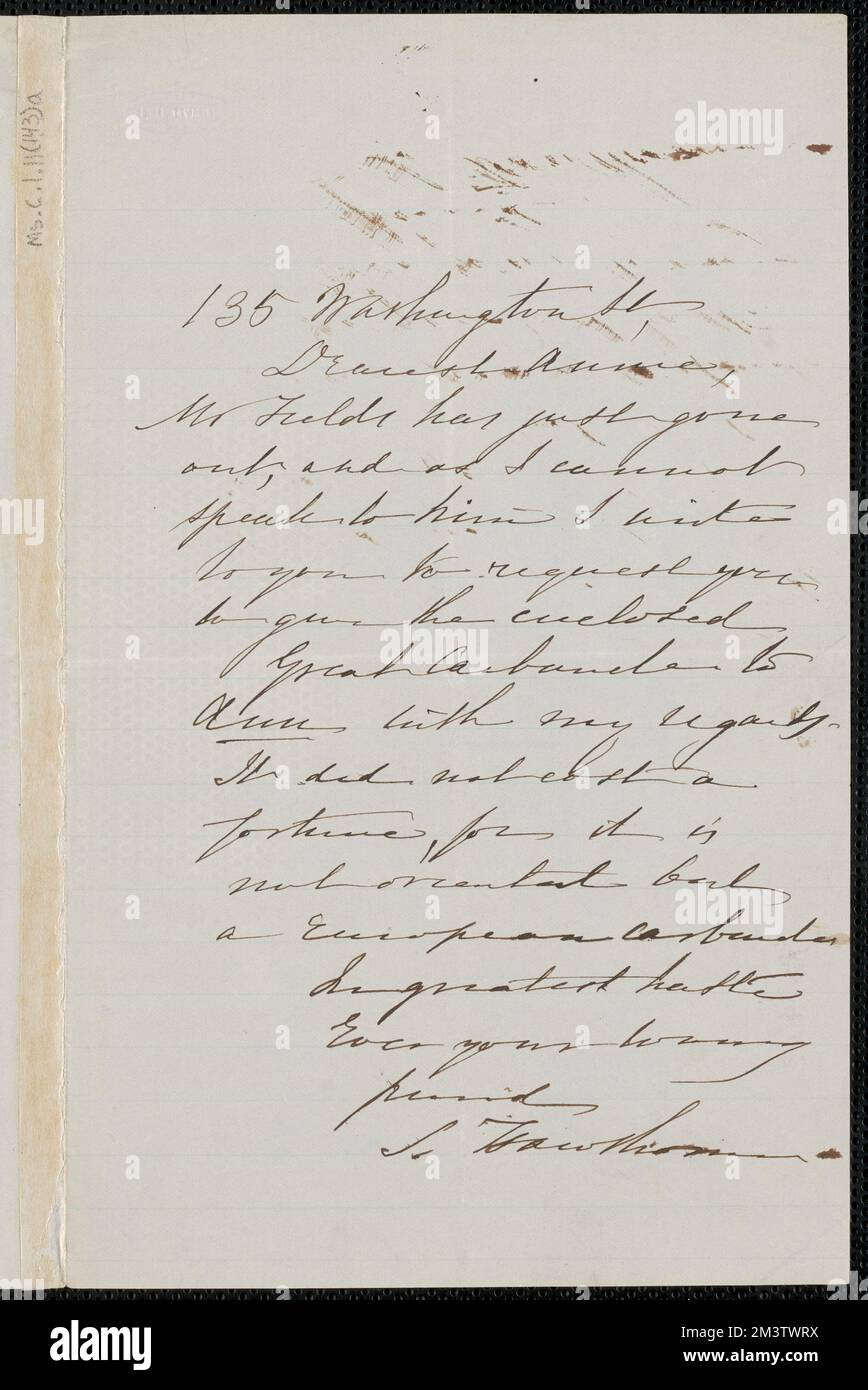 Ms. C. 1. 11 (143) a
135 Washington St,
Dearest Annie,
Mr Fields has just gone
out, and as I cannot
speak to him I write
to you to request you
to give the enclosed
Great Carbuncle to
Ann with my regards.
It did not cost a
fortune, for it is
not oriental but
a European carbuncle
In greatest haste
Ever your loving
friend
S. Hawthorne
alamy
a
Image ID: 2M3TWRX
www.alamy.com